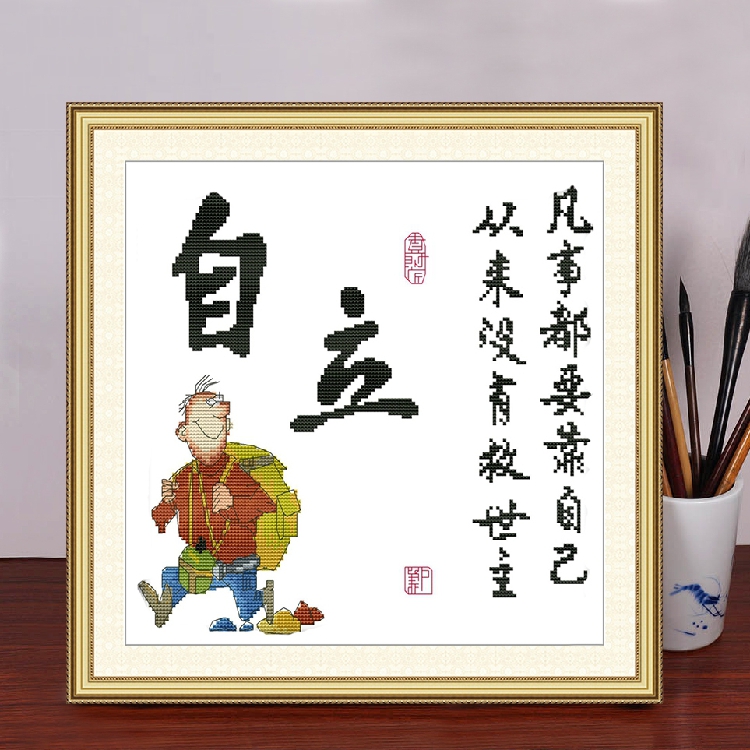 自立
凡事都要靠自己
从来没有救世主